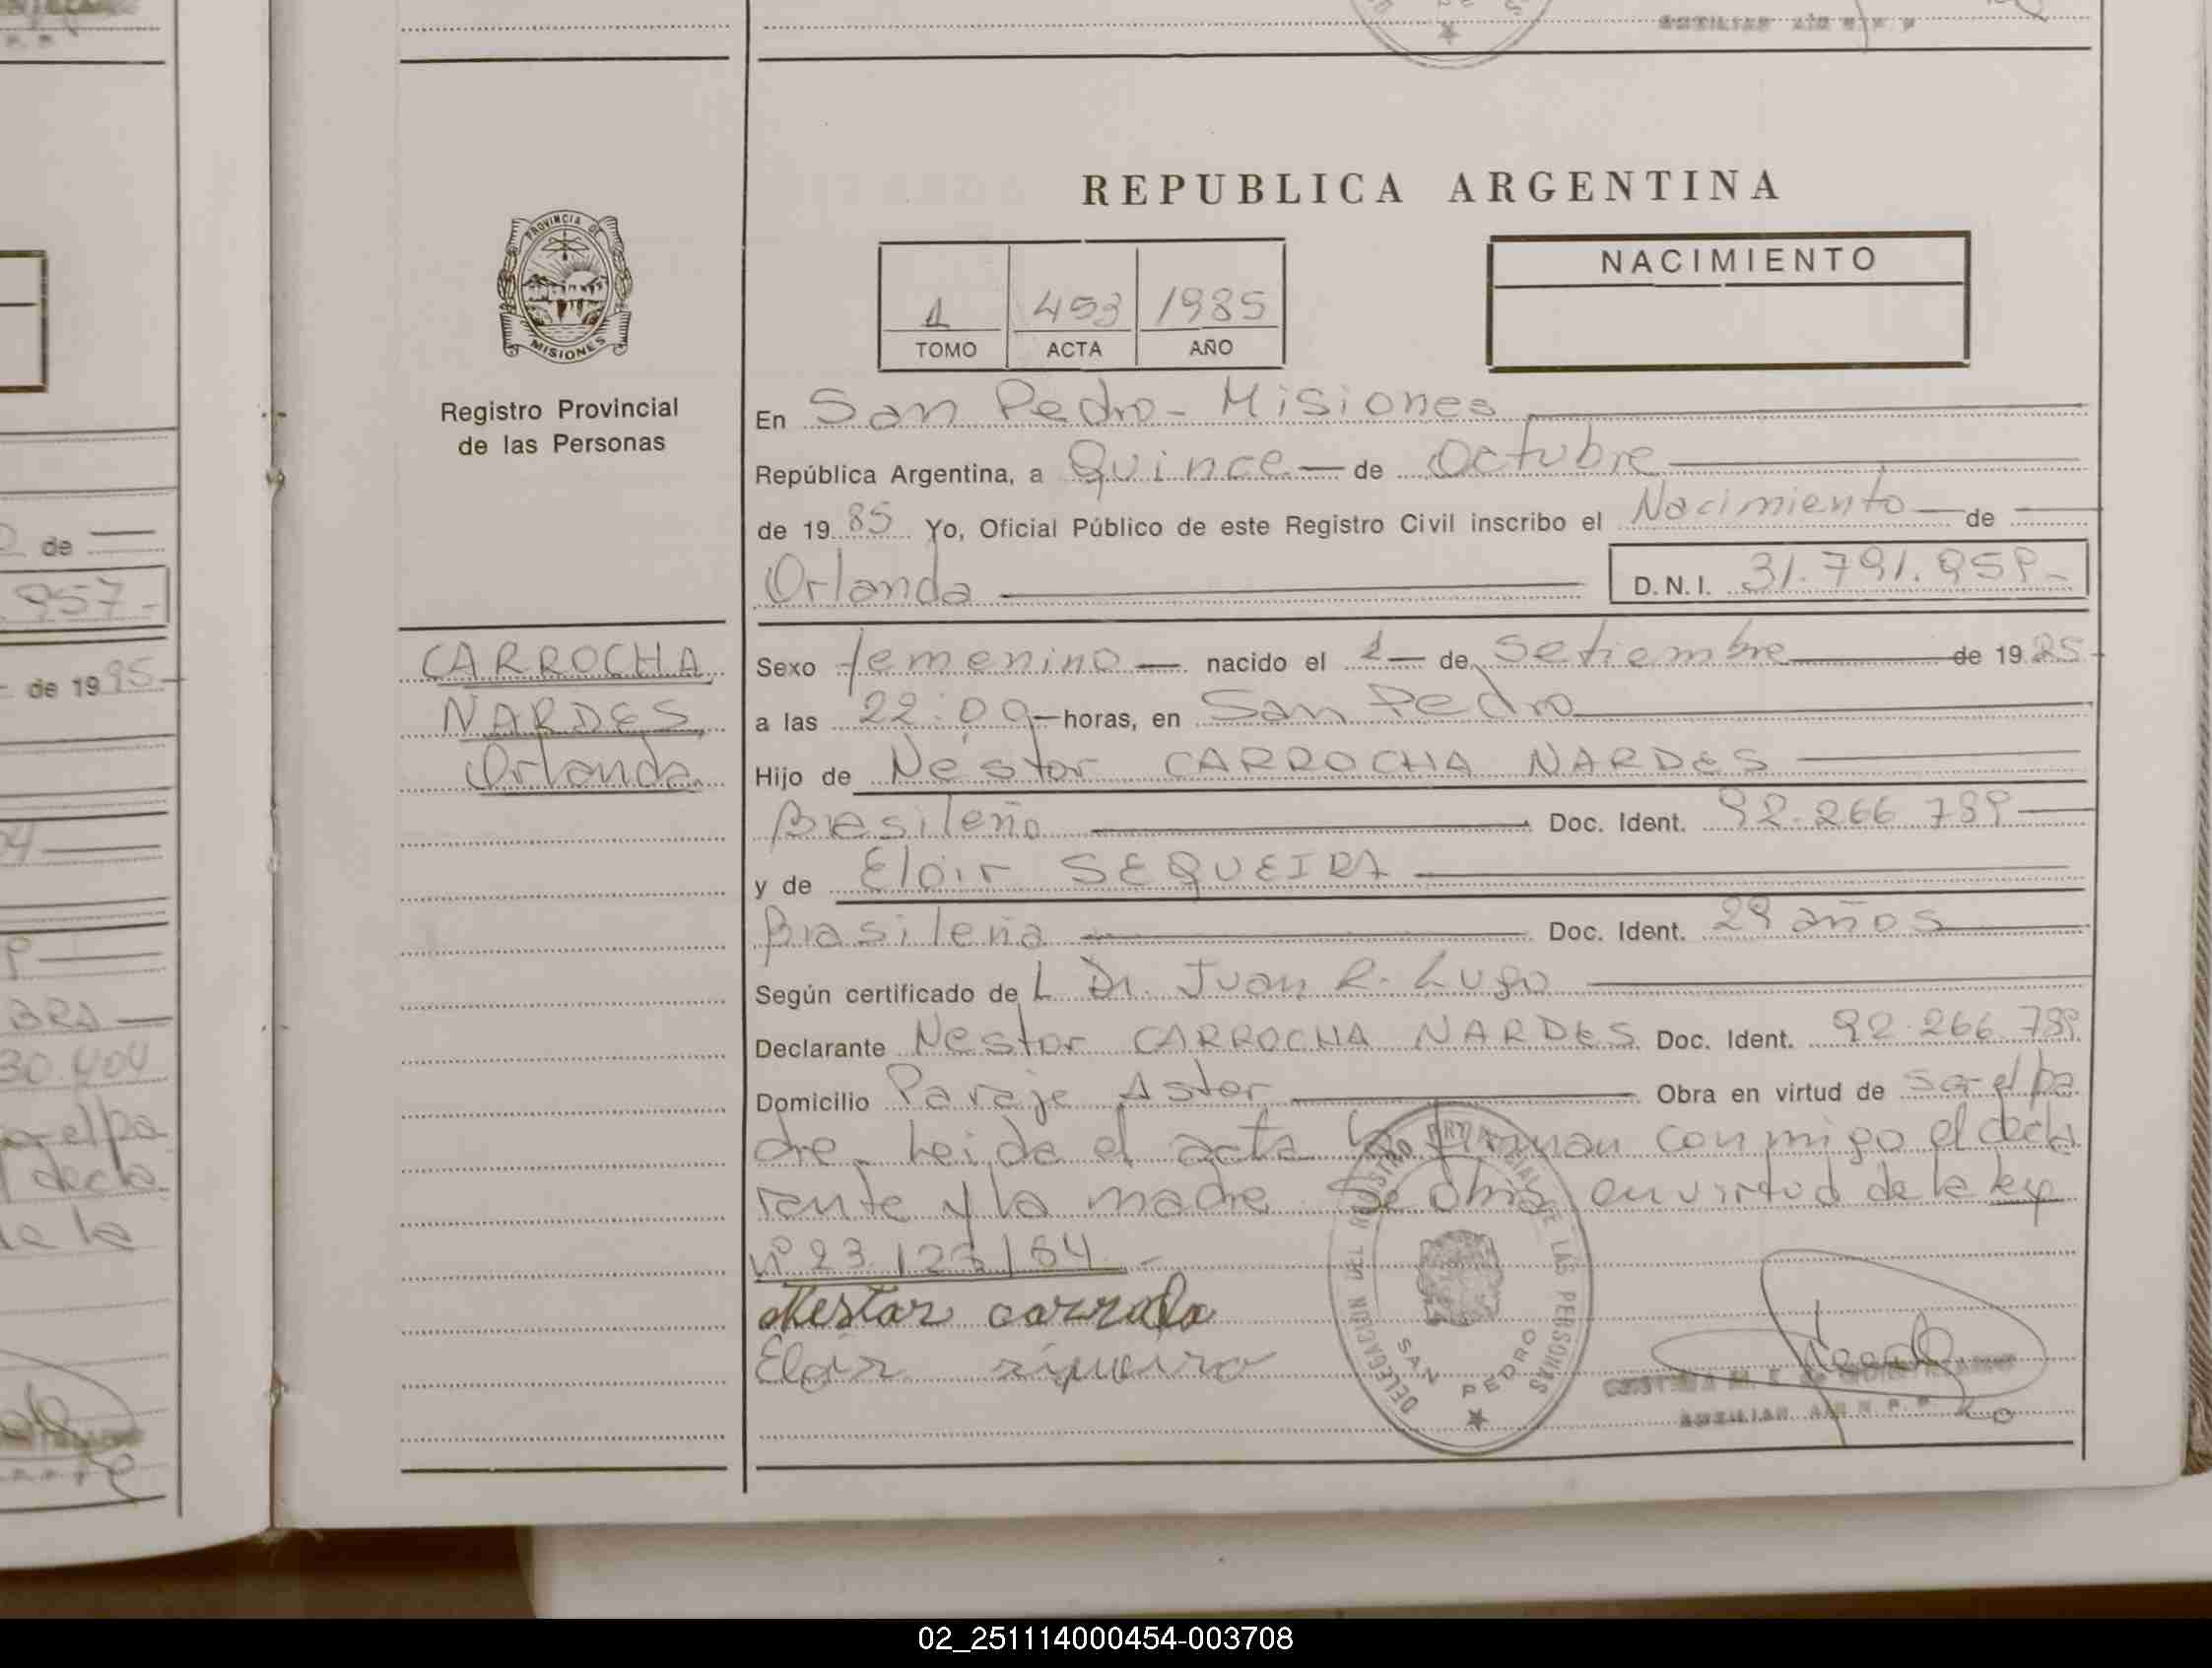 REPUBLICA ARGENTINA
PROVINCIA DE
MISIONES
Registro Provincial
de las Personas
1 453 1985
TOMO ACTA AÑO
NACIMIENTO
En San Pedro - Misiones
República Argentina, a Quince — de Octubre
de 1985 Yo, Oficial Público de este Registro Civil inscribo el Nacimiento — de
Orlanda
D.N.I. 31.791.959-
CARROCHA
NARDES
Orlanda
Sexo femenino — nacido el 1 — de Setiembre de 1985
a las 22:00 — horas, en San Pedro
Hijo de Néstor CARROCHA NARDES
Brasileño Doc. Ident. 92.266.789
y de Eloir SEQUEIRA
Brasileña Doc. Ident. 29 años
Según certificado del Dr. Juan R. Lugo
Declarante Nestor CARROCHA NARDES Doc. Ident. 92.266.789
Domicilio Paraje Aster Obra en virtud de ser el pa
dre. Leida el acta la firman conmigo el decla
rante y la madre Se obra en virtud de la ley
nº 23.123/84.-
Nestar carrocha
Eloir siqueira
DELEGACION DEL REGISTRO PROVINCIAL DE LAS PERSONAS
SAN PEDRO
957-
de
de 1985
30.404
02_251114000454-003708